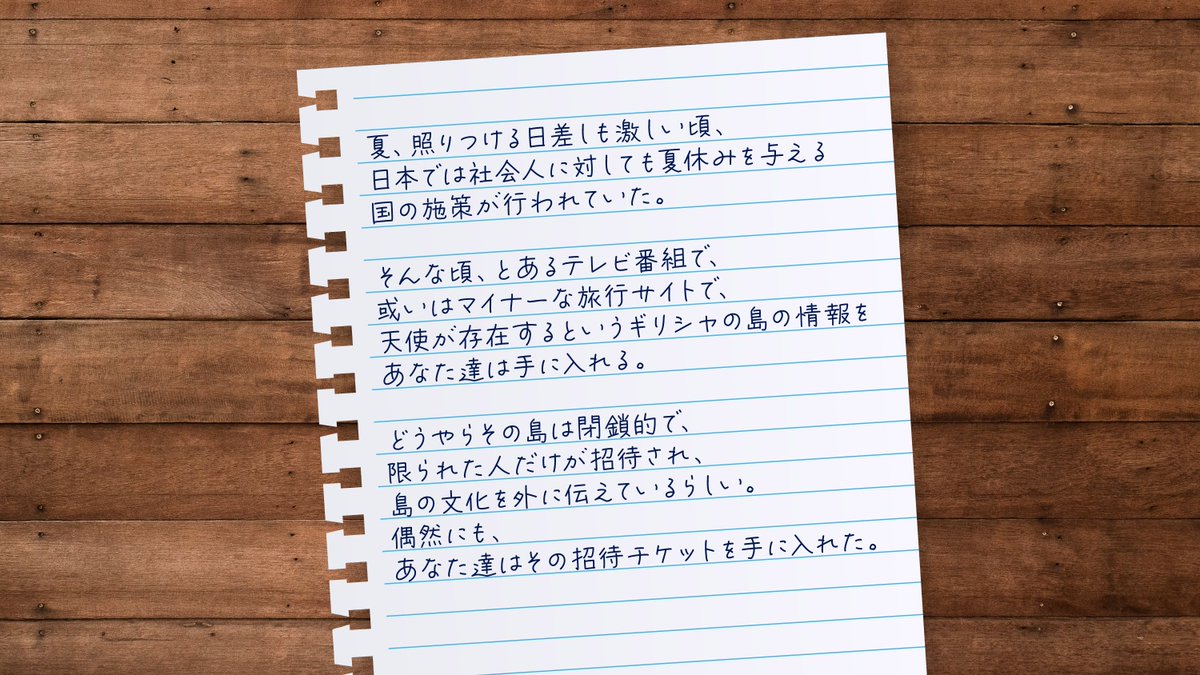 夏、照りつける日差しも激しい頃、
日本では社会人に対しても夏休みを与える
国の施策が行われていた。
そんな頃、とあるテレビ番組で、
或いはマイナーな旅行サイトで、
天使が存在するというギリシャの島の情報を
あなた達は手に入れる。
どうやらその島は閉鎖的で、
限られた人だけが招待され、
島の文化を外に伝えているらしい。
偶然にも、
あなた達はその招待チケットを手に入れた。